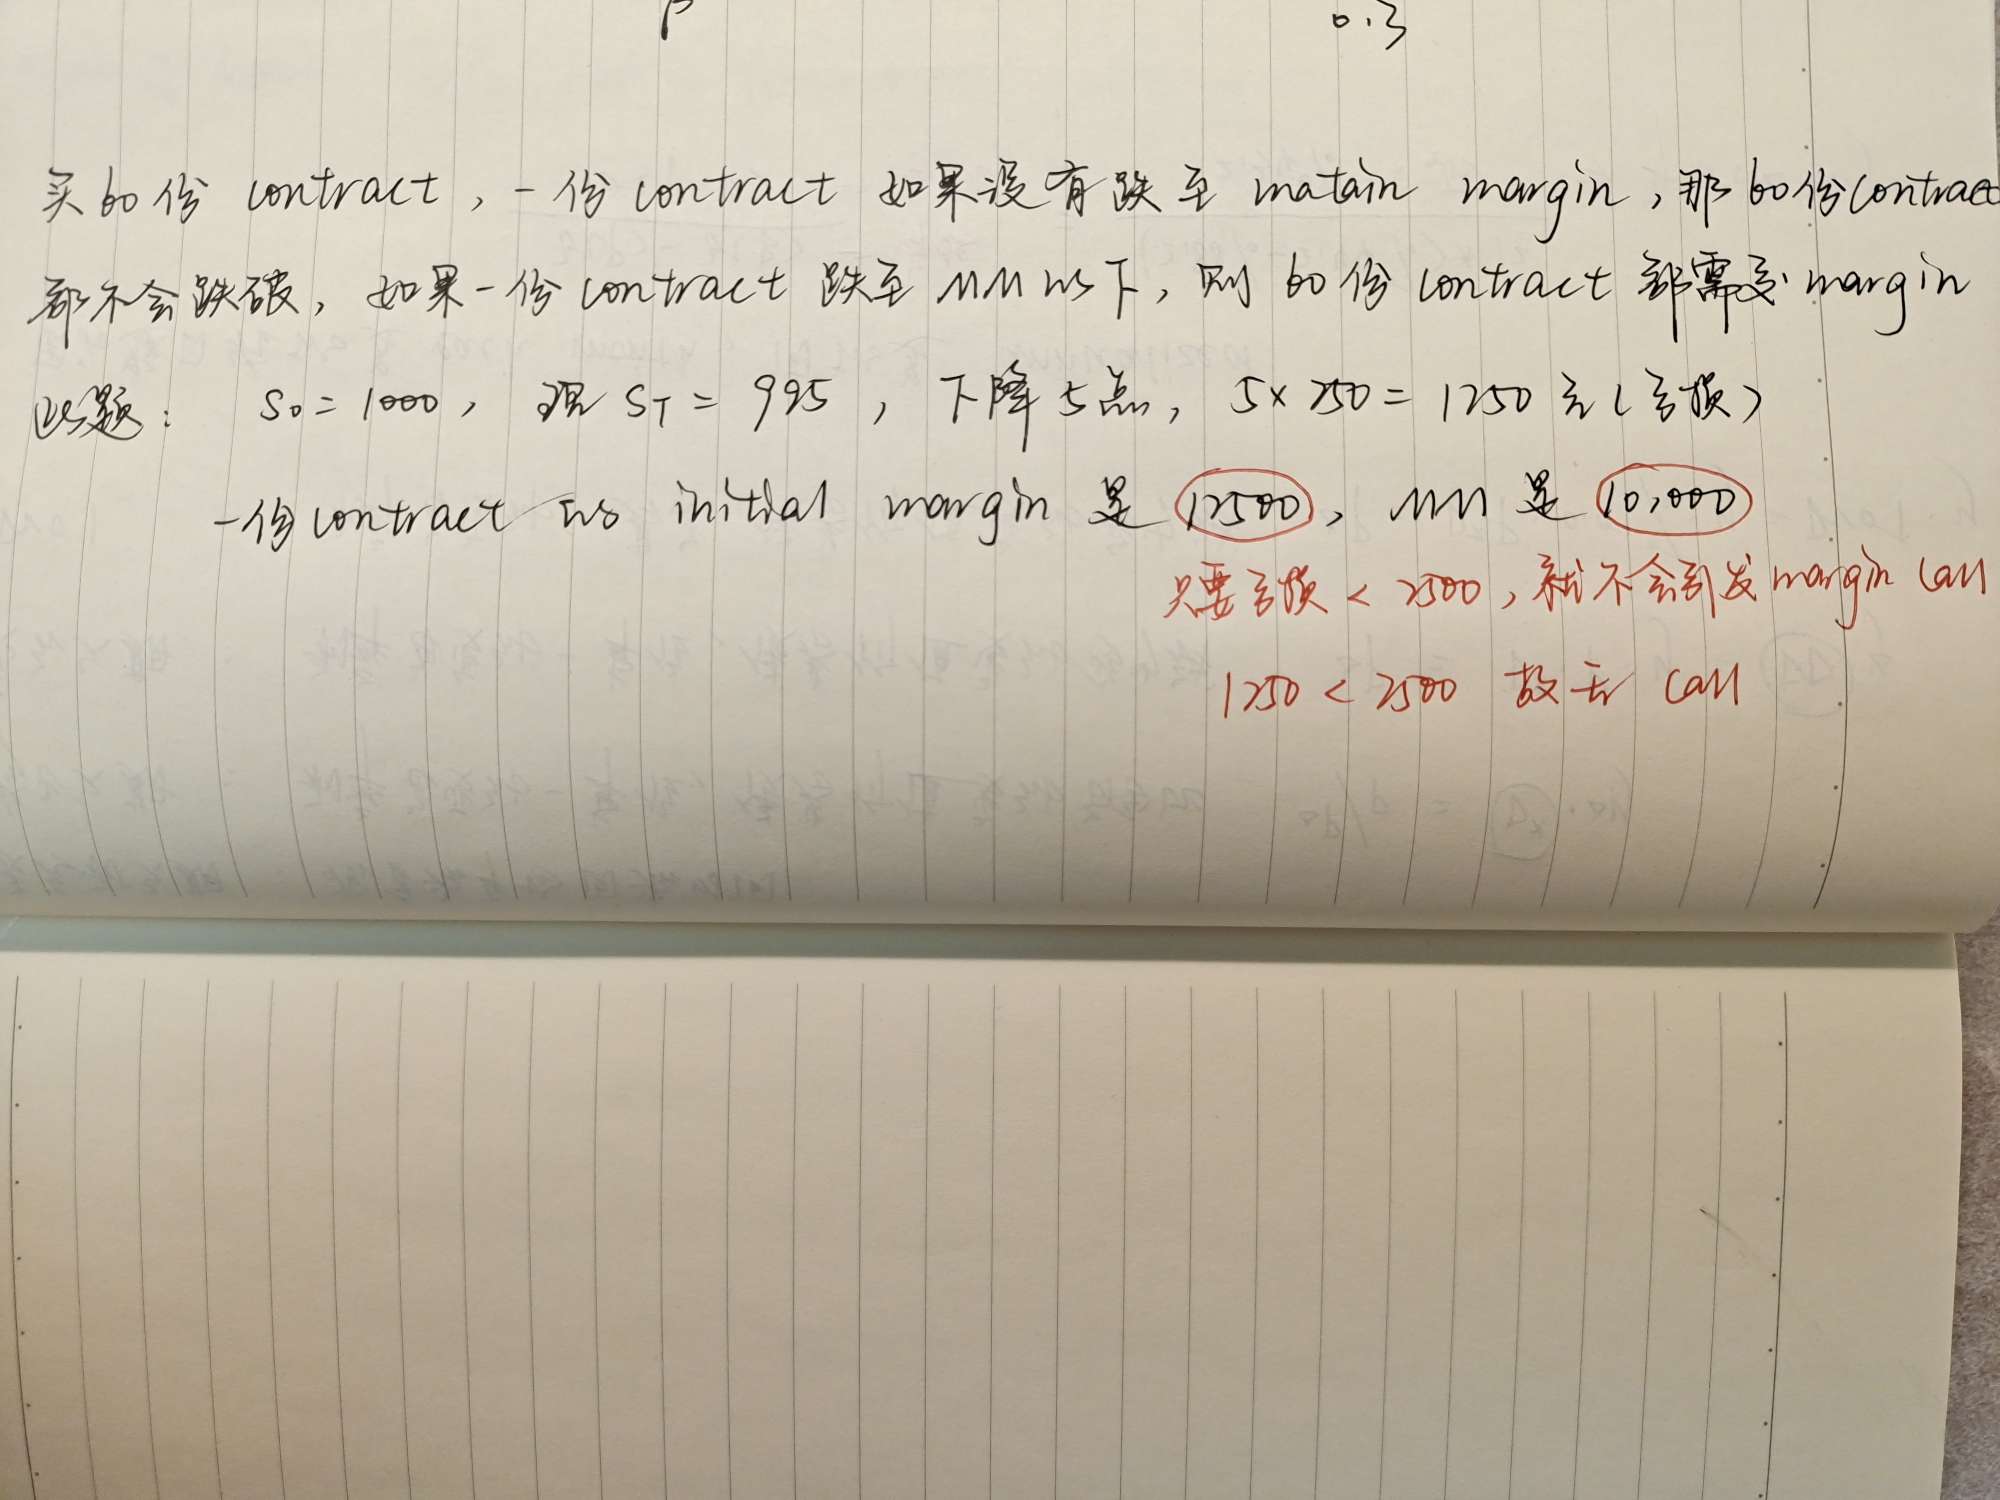 β 0.3
买60份 contract，一份contract 如果没有跌至 matain margin，那60份contract
都不会跌破，如果一份contract 跌至MM以下，则60份contract 都需交margin
此题： S0=1000，现 ST=995，下降5点，5×250=1250 亏（亏损）
一份contract 的 initial margin 是 12500，MM 是 10,000
只要亏损 < 2500，就不会引发margin call
1250 < 2500 故无 call